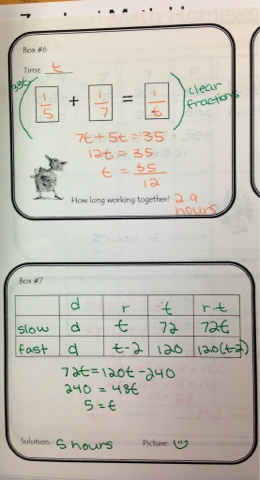 Box #6
Time t
35t ( 1/5 + 1/7 = 1/t ) clear fractions
7t + 5t = 35
12t = 35
t = 35/12
How long working together? 2.9 hours
Box #7
d r t r·t
slow d t 72 72t
fast d t-2 120 120(t-2)
72t = 120t - 240
240 = 48t
5 = t
Solution: 5 hours Picture: